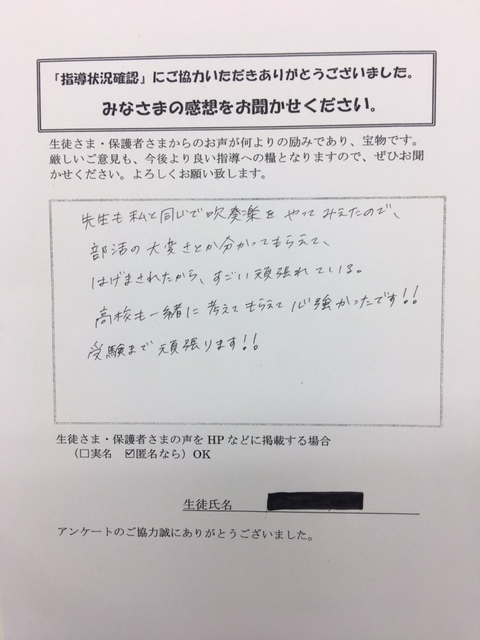 「指導状況確認」にご協力いただきありがとうございました。
みなさまの感想をお聞かせください。
生徒さま・保護者さまからのお声が何よりの励みであり、宝物です。
厳しいご意見も、今後より良い指導への糧となりますので、ぜひお聞
かせください。よろしくお願い致します。
先生も私と同じで吹奏楽をやってみえたので、
部活の大変さとか分かってもらえて、
はげまされたから、すごい頑張れている。
高校も一緒に考えてもらえて心強かったです!!
受験まで頑張ります!!
生徒さま・保護者さまの声をHPなどに掲載する場合
(□実名 ☑匿名なら)OK
生徒氏名
アンケートのご協力誠にありがとうございました。